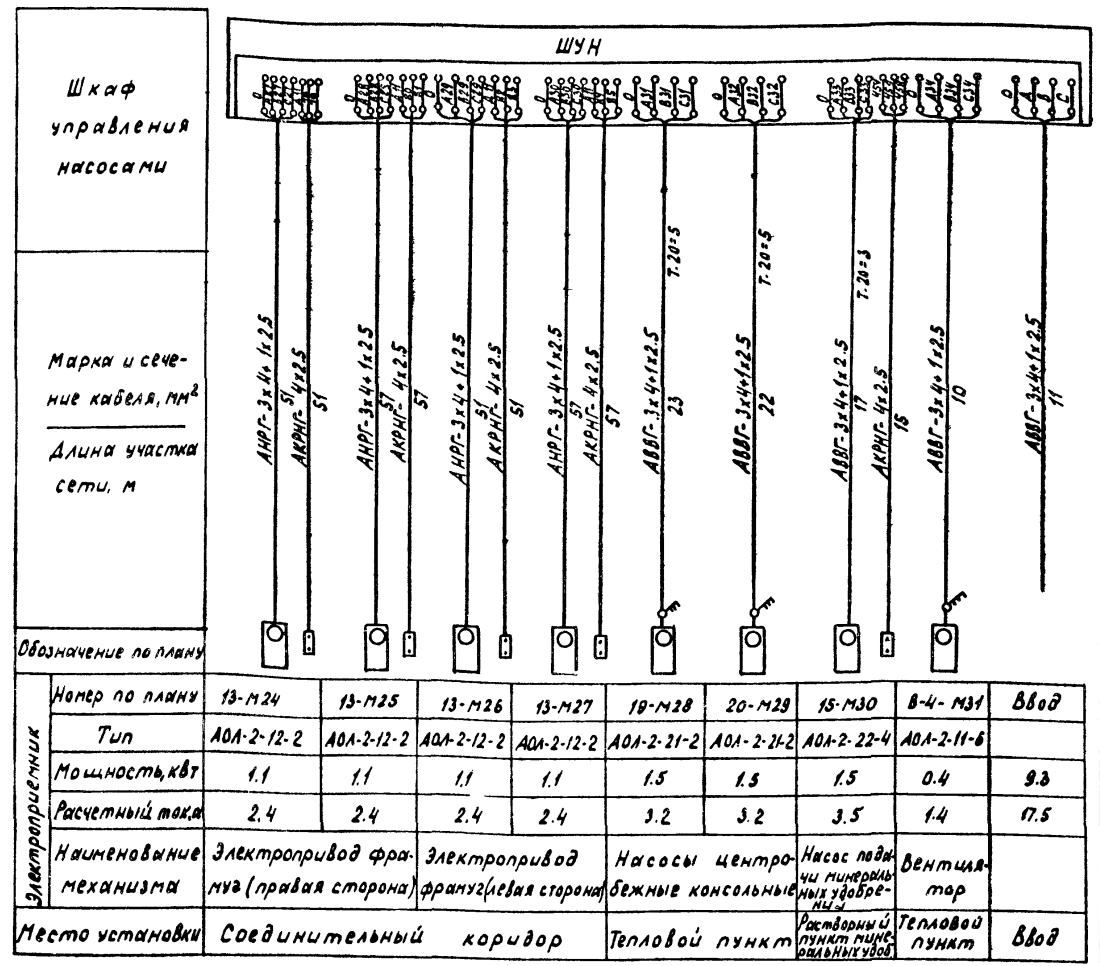 ШУН
Шкаф
управления
насосами
0
А31
В31
С31
0
А32
В32
С32
0
А33
В33
С33
0
А34
В34
С34
0
А
В
С
Марка и сече-
ние кабеля, мм²
Длина участка
сети, м
АНРГ-3х4+1х2.5
51
АКРНГ-4х2.5
51
АНРГ-3х4+1х2.5
57
АКРНГ-4х2.5
57
АНРГ-3х4+1х2.5
51
АКРНГ-4х2.5
51
АНРГ-3х4+1х2.5
57
АКРНГ-4х2.5
57
АВВГ-3х4+1х2.5
23
Т.20=5
АВВГ-3х4+1х2.5
22
Т.20=5
АВВГ-3х4+1х2.5
17
Т.20=3
АКРНГ-4х2.5
15
АВВГ-3х4+1х2.5
10
АВВГ-3х4+1х2.5
11
Обозначение по плану
Электроприемник
Номер по плану 13-М24 13-М25 13-М26 13-М27 19-М28 20-М29 15-М30 В-4-М31 Ввод
Тип АОЛ-2-12-2 АОЛ-2-12-2 АОЛ-2-12-2 АОЛ-2-12-2 АОЛ-2-21-2 АОЛ-2-21-2 АОЛ-2-22-4 АОЛ-2-11-6
Мощность, квт 1.1 1.1 1.1 1.1 1.5 1.5 1.5 0.4 9.3
Расчетный ток, а 2.4 2.4 2.4 2.4 3.2 3.2 3.5 1.4 17.5
Наименование
механизма
Электропривод фра-
муг (правая сторона)
Электропривод
фрамуг (левая сторона)
Насосы центро-
бежные консольные
Насос пода-
чи минераль-
ных удобре-
ния
Вентиля-
тор
Место установки
Соединительный коридор
Тепловой пункт
Растворный
пункт мине-
ральных удоб.
Тепловой
пункт
Ввод